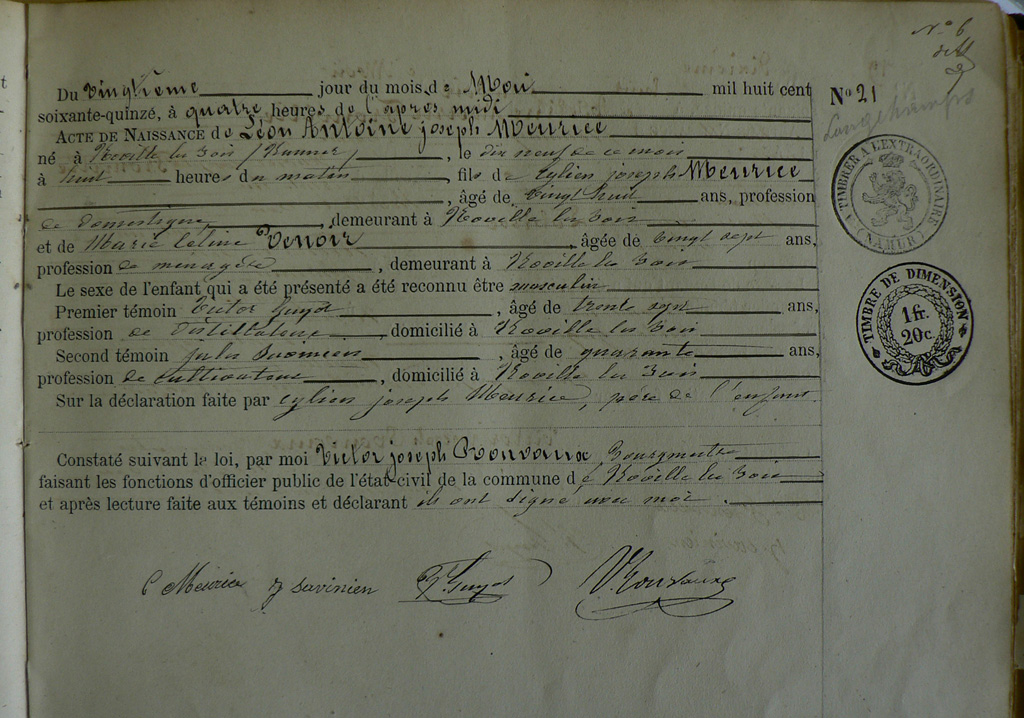 N° 6
Du vingtième jour du mois de Mai mil huit cent
N° 21
soixante-quinze, à quatre heures de l'après midi
Longchamps
ACTE DE NAISSANCE de Léon Antoine joseph Meurice
né à Noville les Bois, le dix neuf de ce mois
à huit heures du matin, fils de joseph Meurice
, âgé de vingt huit ans, profession
de Domestique, demeurant à Noville les Bois
et de Marie Céline Denoir, âgée de vingt sept ans,
profession de ménagère, demeurant à Noville les Bois
Le sexe de l'enfant qui a été présenté a été reconnu être masculin
Premier témoin Victor Guyot, âgé de trente sept ans,
profession de Distillateur, domicilié à Noville les Bois
Second témoin jules, âgé de quarante ans,
profession de cultivateur, domicilié à Noville les Bois
Sur la déclaration faite par joseph Meurice, père de l'enfant.
Constaté suivant la loi, par moi Victor joseph Bourgmestre
faisant les fonctions d'officier public de l'état-civil de la commune de Noville les Bois
et après lecture faite aux témoins et déclarant ils ont signé avec moi.
C Meurice J Savinien V. Guyot
A TIMBRER A L'EXTRAORDINAIRE
(NAMUR)
TIMBRE DE DIMENSION
1 fr.
20 c.